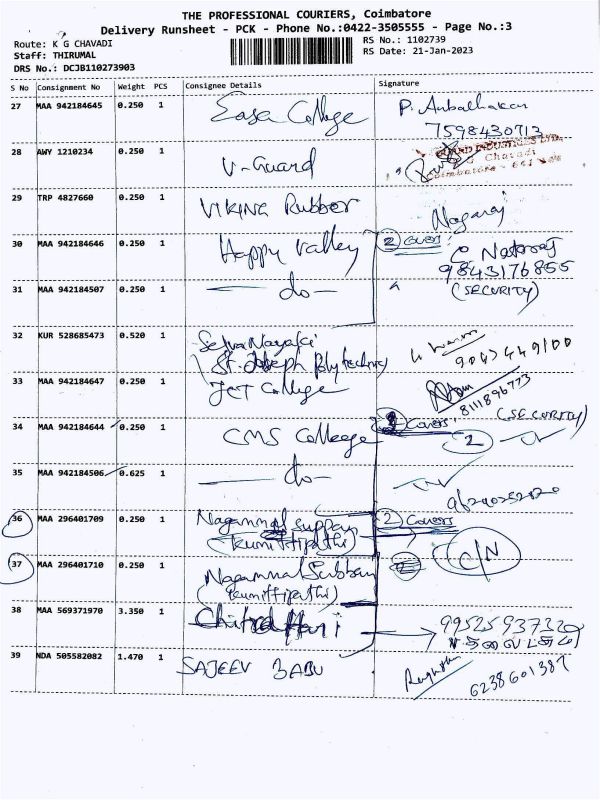 THE PROFESSIONAL COURIERS, Coimbatore
Delivery Runsheet - PCK - Phone No.:0422-3505555 - Page No.:3
Route: K G CHAVADI
RS No.: 1102739
Staff: THIRUMAL
RS Date: 21-Jan-2023
DRS No.: DCJB110273903
S No Consignment No Weight PCS Consignee Details Signature
27 MAA 942184645 0.250 1 Easa College P. Anbalhakan
7598430713
28 AWY 1210234 0.250 1 V-Guard
Coimbatore - 641
29 TRP 4827660 0.250 1 VIKING Rubber Nagaraj
30 MAA 942184646 0.250 1 Happy Valley 2 Covers
Nataraj
9843176855
31 MAA 942184507 0.250 1 do (SECURITY)
32 KUR 528685473 0.520 1 Selva Nayaki
St. Joseph Polytechnic 9047449100
33 MAA 942184647 0.250 1 JCT College 8111896773
34 MAA 942184644 0.250 1 CMS College Covers (SECURITY)
2
35 MAA 942184506 0.625 1 do
36 MAA 296401709 0.250 1 Nagammal Suppan 2 Covers
(Kumittipathi) C/N
37 MAA 296401710 0.250 1 Nagammal Subban
(Kumittipathi)
38 MAA 569371970 3.350 1 Chitra Hari 9952593732
39 NDA 505582082 1.470 1 SAJEEV BABU
6238601387